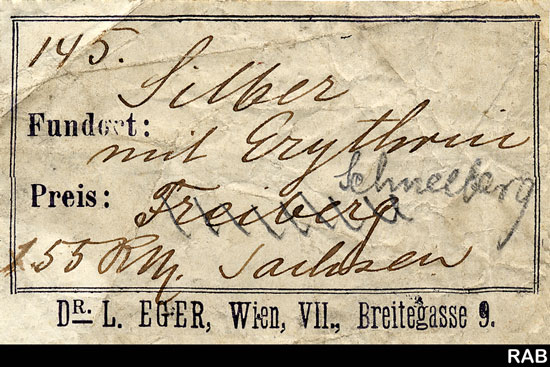 145.
Silber
Fundort:
mit Erythrin
Schneeberg
Preis: Freiberg
155 RM. Sachsen
DR. L. EGER, Wien, VII., Breitegasse 9.
RAB